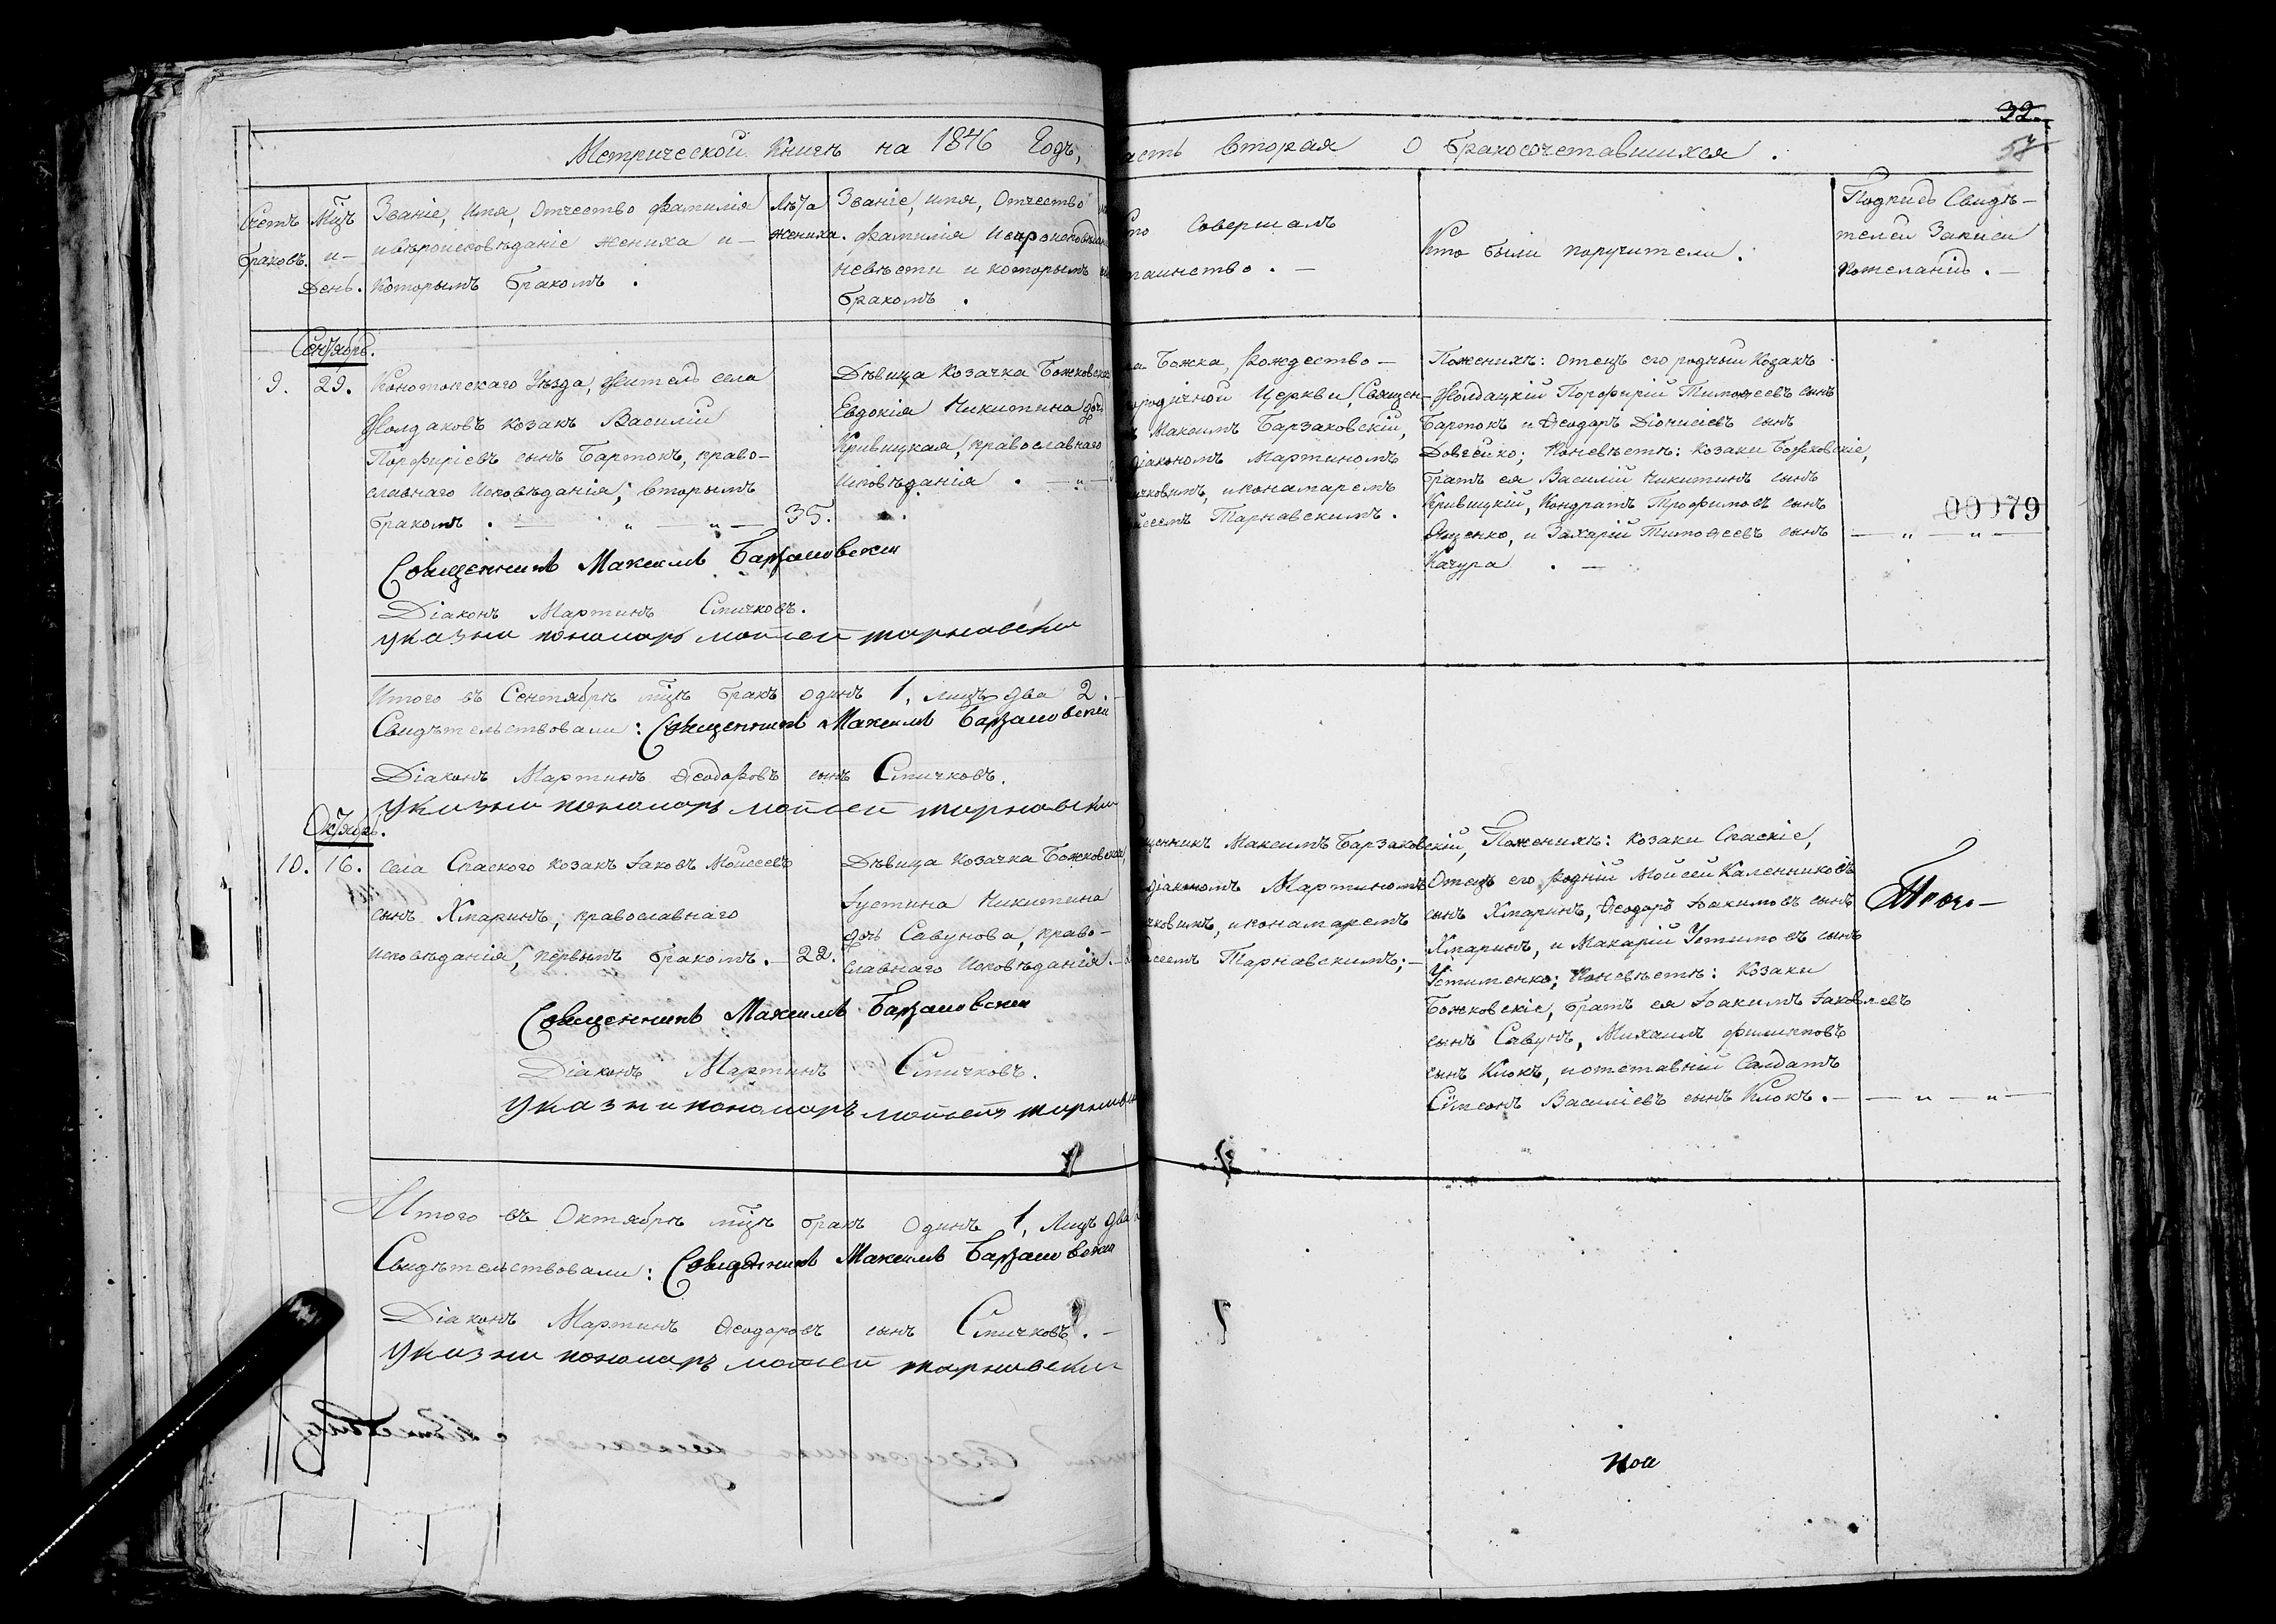 32.
57
Метрической Книги на 1846 Годъ,
асть вторая О бракосочетавшихся.
Счетъ браковъ.
Мцъ и День.
Званіе, Имя, Отчество фамилія
и вѣроисповѣданіе жениха и
которымъ бракомъ.
Лѣта
жениха.
Званіе, имя, Отчество
фамилія
невѣсти и которымъ
бракомъ.
то Совершалъ
таинство.
Кто были поручители.
Подпись Свидѣ-
телей Записи
по желанію.
Сентябрь.
9. 29. Конотопскаго Уѣзда, Житель села
Жолдаковъ козакъ Василій
Порфиріевъ сынъ Бартокъ, право-
славнаго исповѣданія; вторымъ
бракомъ. 35.
Дѣвица Козачка Божковская
Евдокія Никитина дочь
Кривицкая, православнаго
исповѣданія.
ка Божка, Рождество-
городичной Церкви, Священ-
ъ Максимъ Барзаковскій,
діакономъ Мартиномъ
ичковимъ, и понамаремъ
исеемъ Тарнавскимъ.
По женихѣ: отецъ его родный козакъ
Жолдацкій Порфирій Тимофеевъ сынъ
Бартокъ и Ѳеодоръ Діонисіевъ сынъ
Довгейко; По невѣстѣ: козаки Божковскіе,
братъ ея Василій Никитинъ сынъ
Кривицкій, Кондратъ Трофимовъ сынъ
Яценко, и Захарій Тимофеевъ сынъ
Качура.
00079
Священникъ Максимъ Барзаковскій
Діаконъ Мартинъ Смичковъ.
указни пономарь мойсей тарнавски
Итого въ Сентябрѣ мцѣ бракъ одинъ 1, лицъ два 2.
Свидѣтельствовали: Священникъ Максимъ Барзаковскій
Діаконъ Мартинъ Ѳеодоровъ сынъ Смичковъ.
указни пономарь мойсей тарнавски
Октябрь.
10. 16. села Спаского козакъ Іаковъ Моисеевъ
сынъ Хмаринъ, православнаго
исповѣданія, первымъ бракомъ. 22.
Дѣвица козачка Божковская,
Іустина Никитина
дочь Савунова, право-
славнаго исповѣданія.
щенникъ Максимъ Барзаковскій,
діакономъ Мартиномъ
чковимъ, и понамаремъ
исеемъ Тарнавскимъ;
По женихѣ: козаки Спаскіе,
Отецъ его родній Мойсей Каленниковъ
сынъ Хмаринъ, Ѳеодоръ Іоакимовъ сынъ
Хмаринъ, и Макарій Устимовъ сынъ
Устименко; По невѣстѣ: козаки
Божковскіе, братъ ея Іоакимъ Іаковлевъ
сынъ Савунъ, Михаилъ Филиповъ
сынъ Клокъ, и отставній Солдатъ
Сімеонъ Василіевъ сынъ Клокъ.
Священникъ Максимъ Барзаковскій
Діаконъ Мартинъ Смичковъ.
указни пономарь мойсей тарнавски
Итого въ Октябрѣ мцѣ бракъ Одинъ 1, Лицъ два
Свидѣтельствовали: Священникъ Максимъ Барзаковскій
Діаконъ Мартинъ Ѳеодоровъ сынъ Смичковъ.
указни пономарь мойсей тарнавски